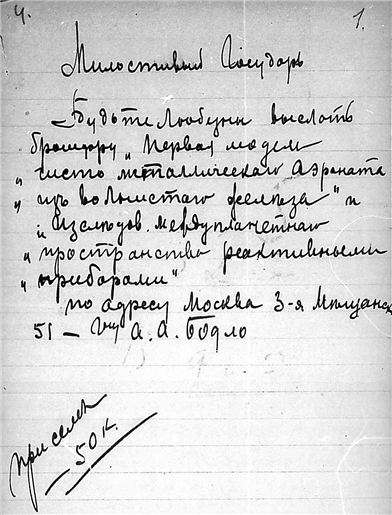 4. 1.
Милостивый Государь
Будьте Любезны выслать
брошюру „Первая модель
„чисто металлическаго Аэроната
„изъ волнистаго железа" и
„Изследов. междупланетнаго
„пространства реактивными
„приборами"
по адресу Москва 3-я Мѣщанск
51 — А. А. Бодло
прислал
50 к.